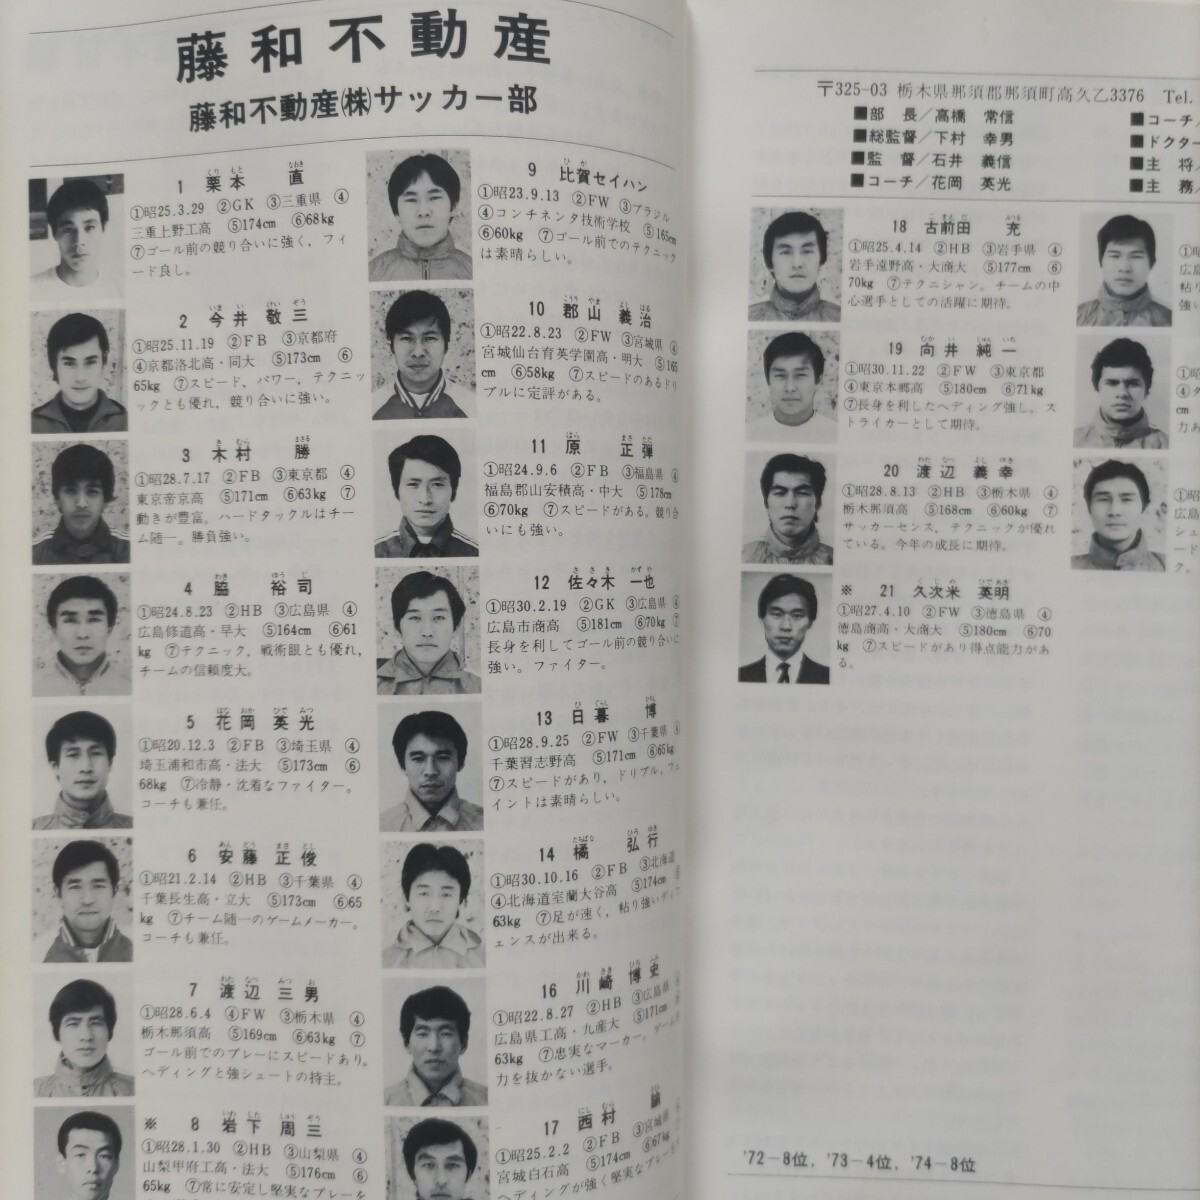 藤和不動産
藤和不動産㈱サッカー部
1 栗本 直
①昭25.3.29 ②GK ③三重県 ④
三重上野工高 ⑤174cm ⑥68kg
⑦ゴール前の競り合いに強く，フィ
ード良し。
2 今井 敬三
①昭25.11.19 ②FB ③京都府
④京都洛北高・同大 ⑤173cm ⑥
65kg ⑦スピード，パワー，テクニ
ックとも優れ，競り合いに強い。
3 木村 勝
①昭28.7.17 ②FB ③東京都 ④
東京帝京高 ⑤171cm ⑥63kg ⑦
動きが豊富。ハードタックルはチー
ム随一。勝負強い。
4 脇 裕司
①昭24.8.23 ②HB ③広島県 ④
広島修道高・早大 ⑤164cm ⑥61
kg ⑦テクニック，戦術眼とも優れ，
チームの信頼度大。
5 花岡 英光
①昭20.12.3 ②FB ③埼玉県 ④
埼玉浦和市高・法大 ⑤173cm ⑥
68kg ⑦冷静・沈着なファイター。
コーチも兼任。
6 安藤 正俊
①昭21.2.14 ②HB ③千葉県 ④
千葉長生高・立大 ⑤173cm ⑥65
kg ⑦チーム随一のゲームメーカー。
コーチも兼任。
7 渡辺 三男
①昭28.6.4 ④FW ③栃木県 ④
栃木那須高 ⑤169cm ⑥63kg ⑦
ゴール前でのプレーにスピードあり。
ヘディングと強シュートの持主。
※ 8 岩下 周三
①昭28.1.30 ②HB ③山梨県 ④
山梨甲府工高・法大 ⑤176cm ⑥
65kg ⑦常に安定し堅実なプレーを
9 比賀セイハン
①昭23.9.13 ②FW ③ブラジル
④コンチネンタ技術学校 ⑤165cm
⑥60kg ⑦ゴール前でのテクニック
は素晴らしい。
10 郡山 義治
①昭22.8.23 ②FW ③宮城県 ④
宮城仙台育英学園高・明大 ⑤165
cm ⑥58kg ⑦スピードのあるドリ
ブルに定評がある。
11 原 正弾
①昭24.9.6 ②FB ③福島県 ④
福島郡山安積高・中大 ⑤178cm
⑥70kg ⑦スピードがある。競り合
いにも強い。
12 佐々木 一也
①昭30.2.19 ②GK ③広島県 ④
広島市商高 ⑤181cm ⑥70kg ⑦
長身を利してゴール前の競り合いに
強い。ファイター。
13 日暮 博
①昭28.9.25 ②FW ③千葉県 ④
千葉習志野高 ⑤171cm ⑥65kg
⑦スピードがあり，ドリブル，フェ
イントは素晴らしい。
14 橘 弘行
①昭30.10.16 ②FB ③北海道
④北海道室蘭大谷高 ⑤174cm
63kg ⑦足が速く，粘り強いディフ
ェンスが出来る。
16 川崎 博史
①昭22.8.27 ②HB ③広島県
広島県工高・九産大 ⑤171cm
63kg ⑦忠実なマーカー。ゲーム中
力を抜かない選手。
17 西村
①昭25.2.2 ②FB ③宮城県
宮城白石高 ⑤174cm ⑥67kg
ヘディングが強く堅実なプレーを
〒325-03 栃木県那須郡那須町高久乙3376 Tel.
■部 長／高橋 常信
■総監督／下村 幸男
■監 督／石井 義信
■コーチ／花岡 英光
■コーチ／
■ドクター
■主 将／
■主 務／
18 古前田 充
①昭25.4.14 ②HB ③岩手県 ④
岩手遠野高・大商大 ⑤177cm ⑥
70kg ⑦テクニシャン。チームの中
心選手としての活躍に期待。
19 向井 純一
①昭30.11.22 ②FW ③東京都
④東京本郷高 ⑤180cm ⑥71kg
⑦長身を利したヘディング強し。ス
トライカーとして期待。
20 渡辺 義幸
①昭28.8.13 ②HB ③栃木県 ④
栃木那須高 ⑤168cm ⑥60kg ⑦
サッカーセンス，テクニックが優れ
ている。今年の成長に期待。
※ 21 久次米 英明
①昭27.4.10 ②FW ③徳島県 ④
徳島商高・大商大 ⑤180cm ⑥70
kg ⑦スピードがあり得点能力があ
る。
'72－8位，'73－4位，'74－8位